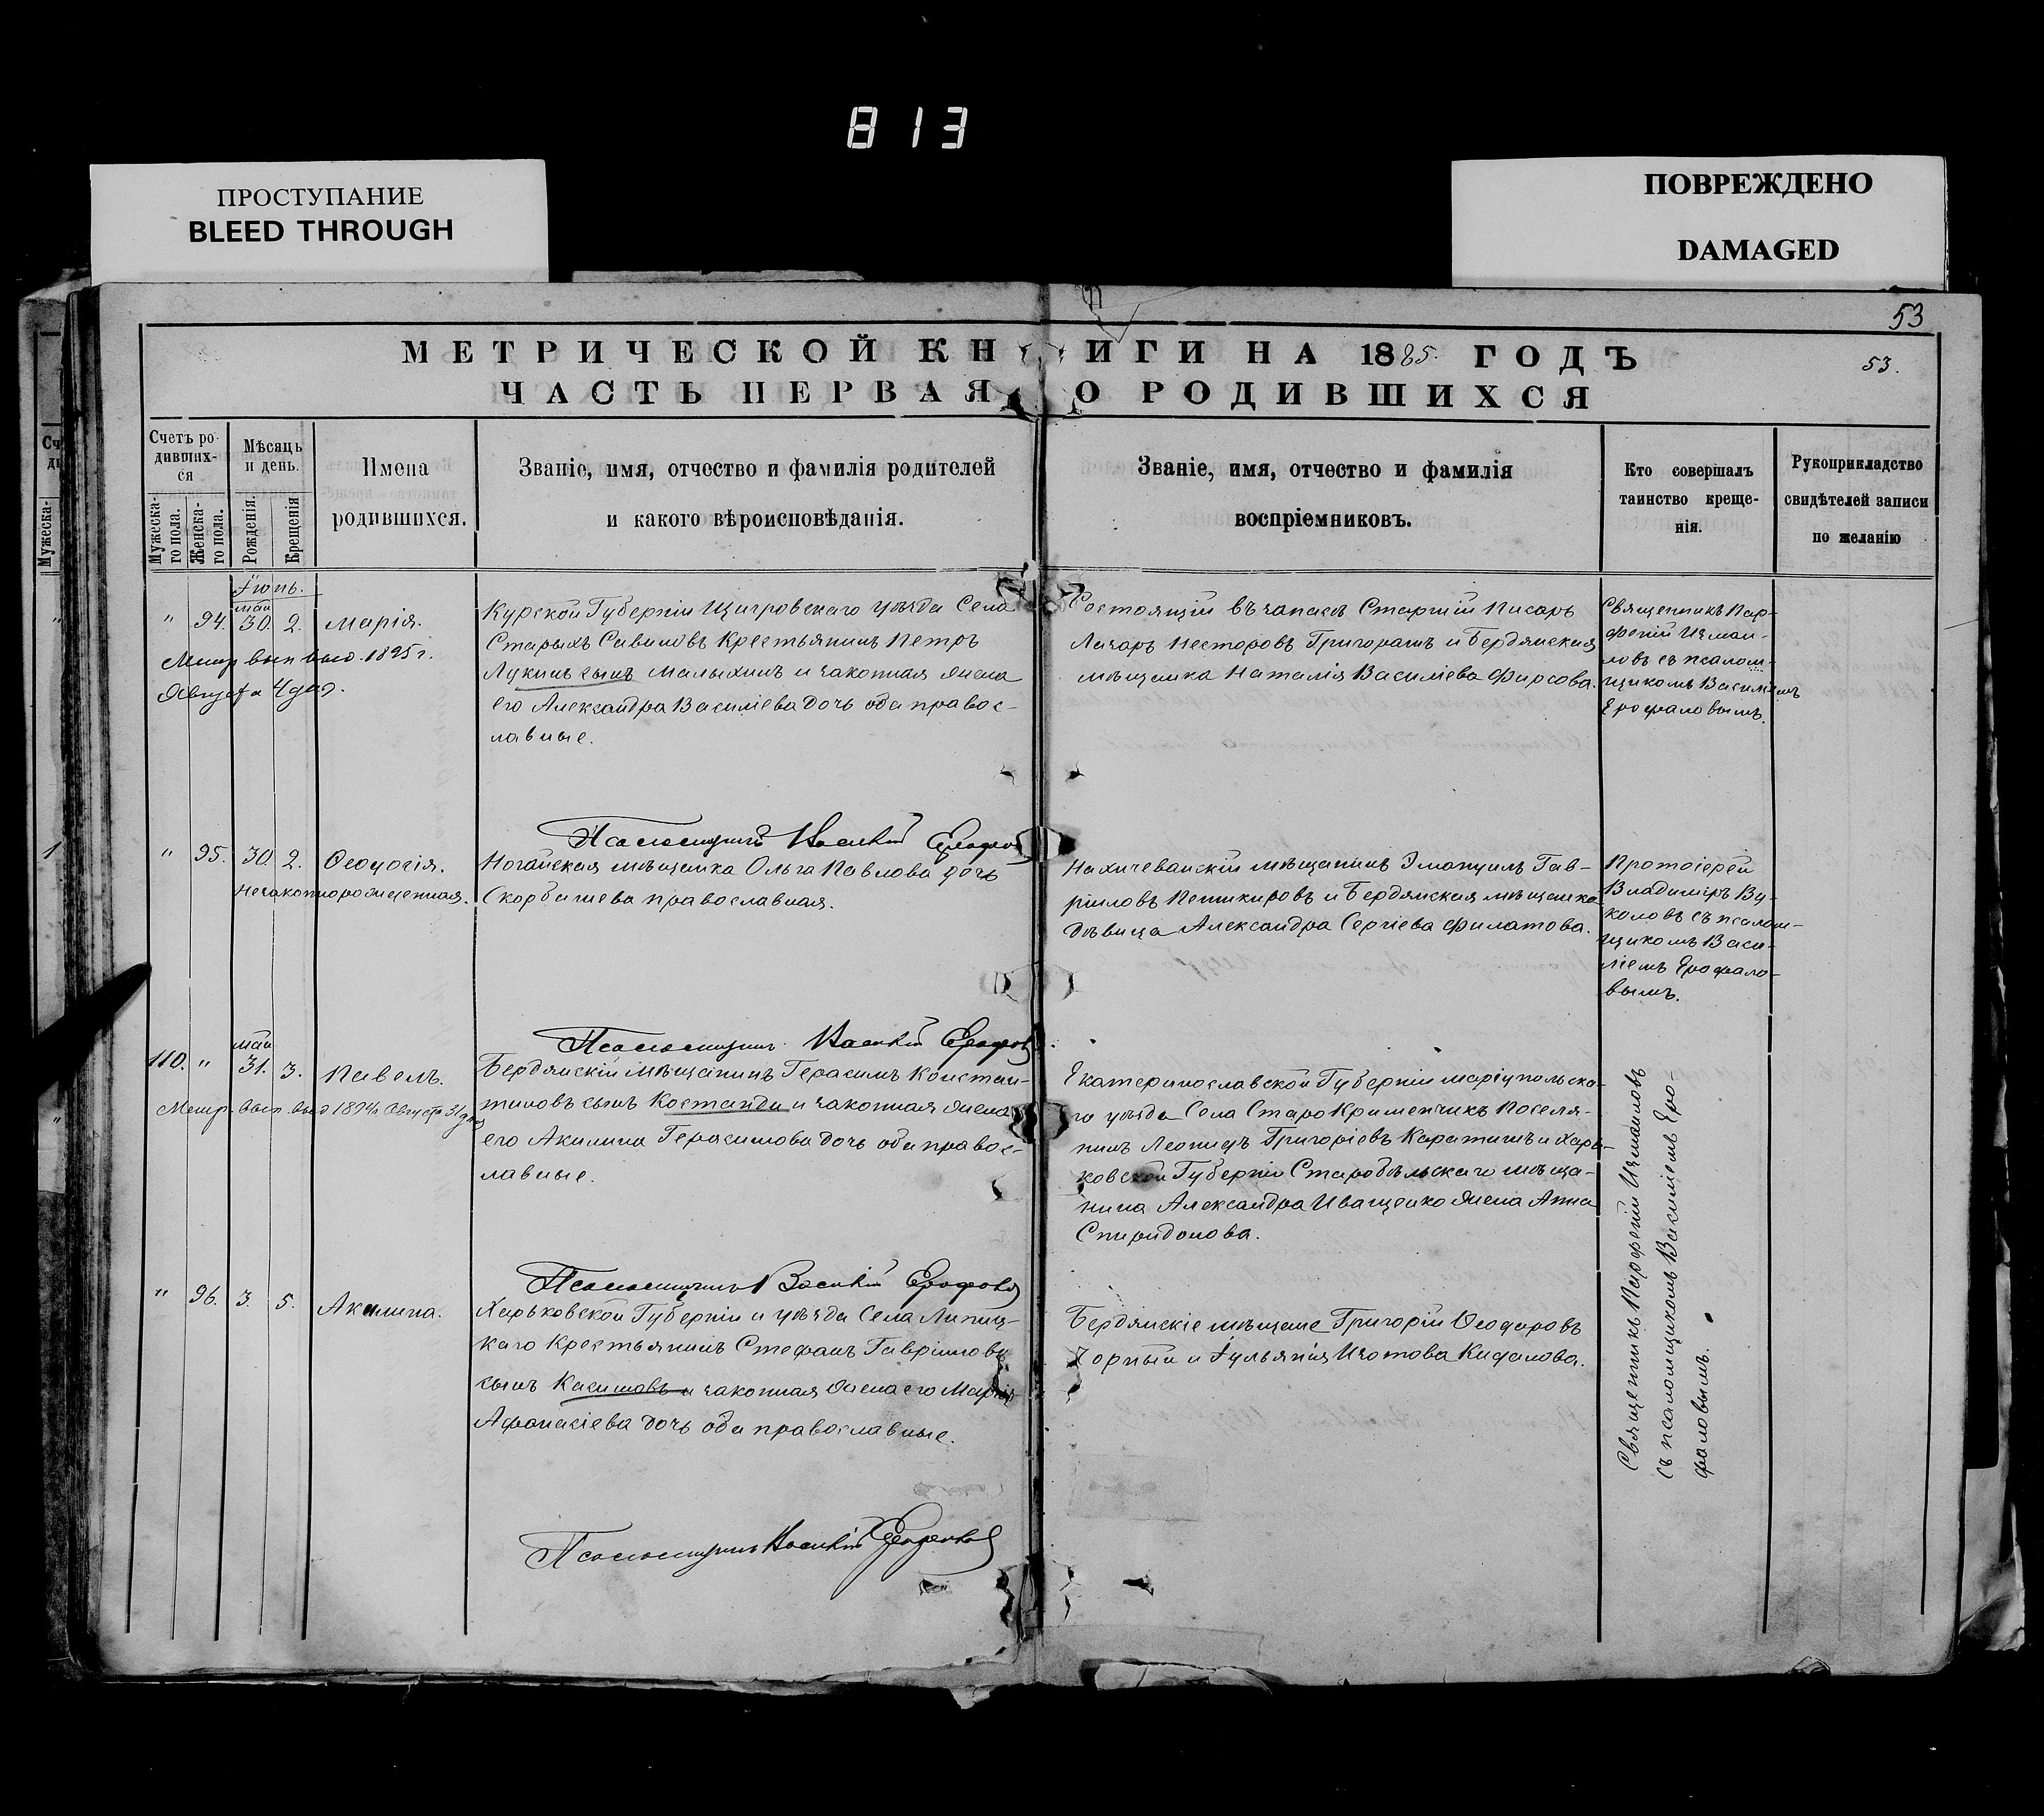 813
ПРОСТУПАНИЕ
BLEED THROUGH
ПОВРЕЖДЕНО
DAMAGED
53
МЕТРИЧЕСКОЙ КНИГИ НА 1885. ГОДЪ
53.
ЧАСТЬ ПЕРВАЯ О РОДИВШИХСЯ
Счетъ ро-
дивших-
ся
Мужеска-
го пола.
Женска-
го пола.
Мѣсяцъ
и день.
Рожденія.
Крещенія
Имена
родившихся.
Званіе, имя, отчество и фамилія родителей
и какого вѣроисповѣданія.
Званіе, имя, отчество и фамилія
воспріемниковъ.
Кто совершалъ
таинство креще-
нія.
Рукоприкладство
свидѣтелей записи
по желанію
Іюнь.
май
" 94. 30. 2. Марія.
Метр. вып. выд. 1895 г.
Августа 4 дня.
Курской Губерніи Щигровскаго уѣзда Села
Старыхъ Савиновъ Крестьянинъ Петръ
Лукинъ сынъ Малыхинъ и законная жена
его Александра Василіева дочь оба правос-
лавные.
Состоящій въ запасѣ Старшій Писарь
Лазарь Несторовъ Григорашъ и Бердянская
мѣщанка Наталія Василіева Фирсова.
Священникъ Пар-
феній Измаи-
ловъ съ псалом-
щикомъ Василіемъ
Ерофаловымъ.
Псаломщикъ Василій
" 95. 30. 2. Ѳеодосія.
Незаконнорожденная.
Ногайская мѣщанка Ольга Павлова дочь
Скорбишева православная.
Нахичеванскій мѣщанинъ Эмануилъ Гав-
ріиловъ Пешкировъ и Бердянская мѣщанка
дѣвица Александра Сергіева Филатова.
Протоіерей
Владиміръ Ву-
коловъ съ псалом-
щикомъ Васи-
ліемъ Ерофало-
вымъ.
Псаломщикъ Василій
май
110. " 31. 3. Павелъ.
Метр. вып. выд 1894 г. Августа 31 дня
Бердянскій Мѣщанинъ Герасимъ Констан-
тиновъ сынъ Костанди и законная жена
его Акилина Герасимова дочь оба правос-
лавные.
Екатеринославской Губерніи Маріупольска-
го уѣзда Села Старо Крименчикъ Поселя-
нинъ Леонидъ Григоріевъ Каратишъ и Харь-
ковской Губерніи Старобѣльскаго мѣща-
нина Александра Иващенко жена Анна
Спиридонова.
Священникъ Парфеній Измаиловъ
съ псаломщикомъ Василіемъ Еро-
фаловымъ.
Псаломщикъ Василій
" 96. 3. 5. Акилина.
Харьковской Губерніи и уѣзда Села Липец-
каго Крестьянинъ Стефанъ Гавріиловъ
сынъ Касимовъ и законная жена его Марія
Афанасіева дочь оба православные.
Бердянскіе мѣщане Григорій Ѳеодоровъ
Чорный и Іульянія Изотова Кидалова.
Псаломщикъ Василій